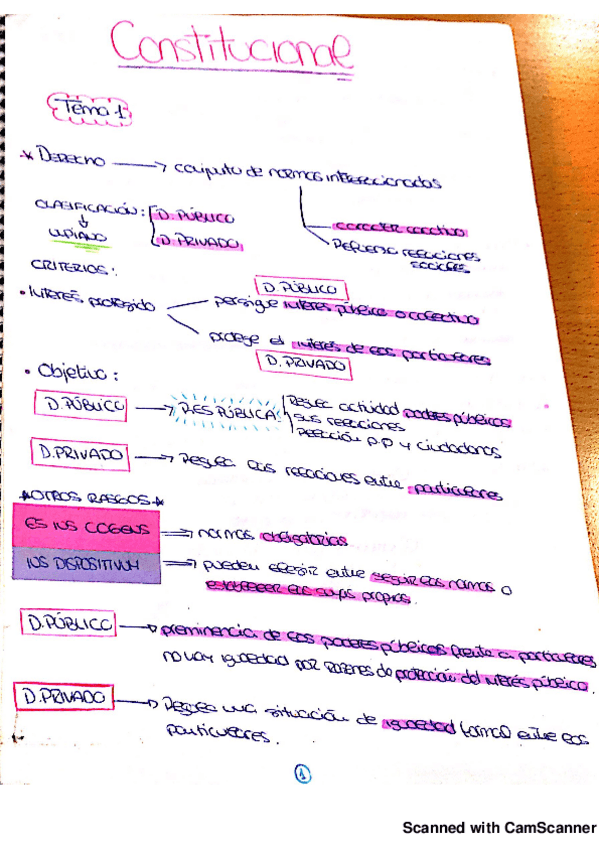 Constitucional
Tema 1
* DERECHO → conjunto de normas interrelacionadas
caracter coactivo
Regular relaciones sociales
CLASIFICACIÓN: D. PÚBLICO
ULPIANO D. PRIVADO
CRITERIOS:
D. PÚBLICO
• Interés protegido persigue interés público o colectivo
protege el interés de los particulares
D. PRIVADO
• Objetivo:
D. PÚBLICO → RES PÚBLICA Regula actividad poderes públicos
sus relaciones
Relación p.p y ciudadanos
D. PRIVADO → Regula las relaciones entre particulares
*OTROS RASGOS*
ES IUS COGENS ⇒ normas obligatorias
IUS DISPOSITIVUM ⇒ pueden elegir entre seguir las normas o
establecer las suyas propias.
D. PÚBLICO → preminencia de los poderes públicos frente a particulares
no hay igualdad por razones de protección del interés público.
D. PRIVADO → Regula una situación de igualdad formal entre los
particulares.
1
Scanned with CamScanner